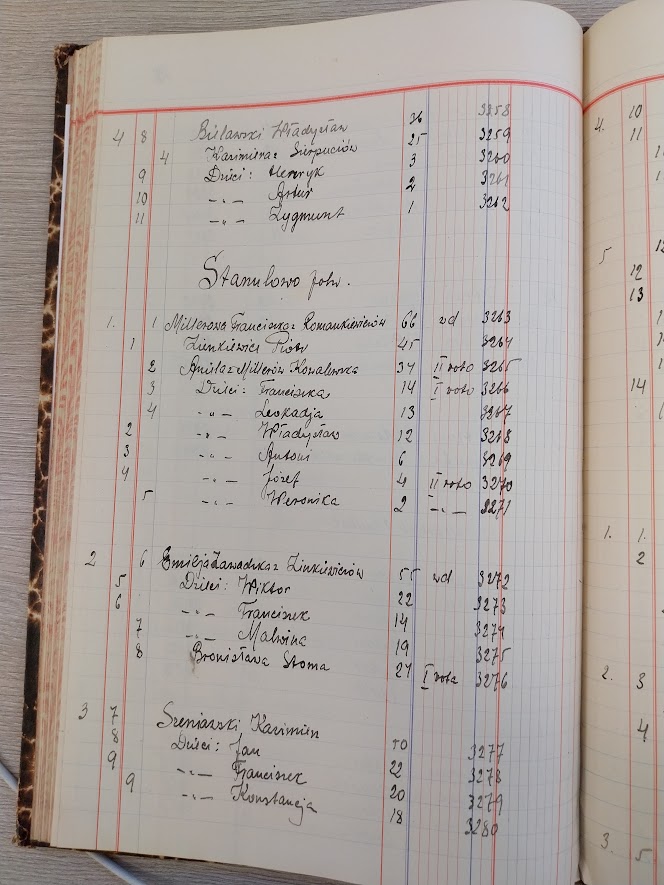 4 8 Bielawski Władysław 36 3258
4 Kazimiera z Sierpuciów 25 3259
9 Dzieci: Henryk 3 3260
10 -„- Artur 2 3261
11 -„- Zygmunt 1 3262
Stanulowo folw.
1. 1 Millerowa Franciszka z Romankiewiczów 66 wd 3263
1 Zienkiewicz Piotr 45 3264
2 Aniela z Millerów Kowalewska 34 II voto 3265
3 Dzieci: Franciszka 14 I voto 3266
4 -„- Leokadja 13 3267
2 -„- Władysław 12 3268
3 -„- Antoni 6 3269
4 -„- Józef 4 II voto 3270
5 -„- Weronika 2 -„- 3271
2 6 Emilja Zawadzka z Zinkiewiczów 55 wd 3272
5 Dzieci: Wiktor 22 3273
6 -„- Franciszek 14 3274
7 -„- Malwina 19 3275
8 Bronisława Stoma 27 I vota 3276
3 7 Kazimierz 50 3277
8 Dzieci: Jan 22 3278
9 -„- Franciszek 20 3279
9 -„- Konstancja 18 3280
4. 10
11
5
12
13
14
1. 1.
2
2. 3
4
3. 5